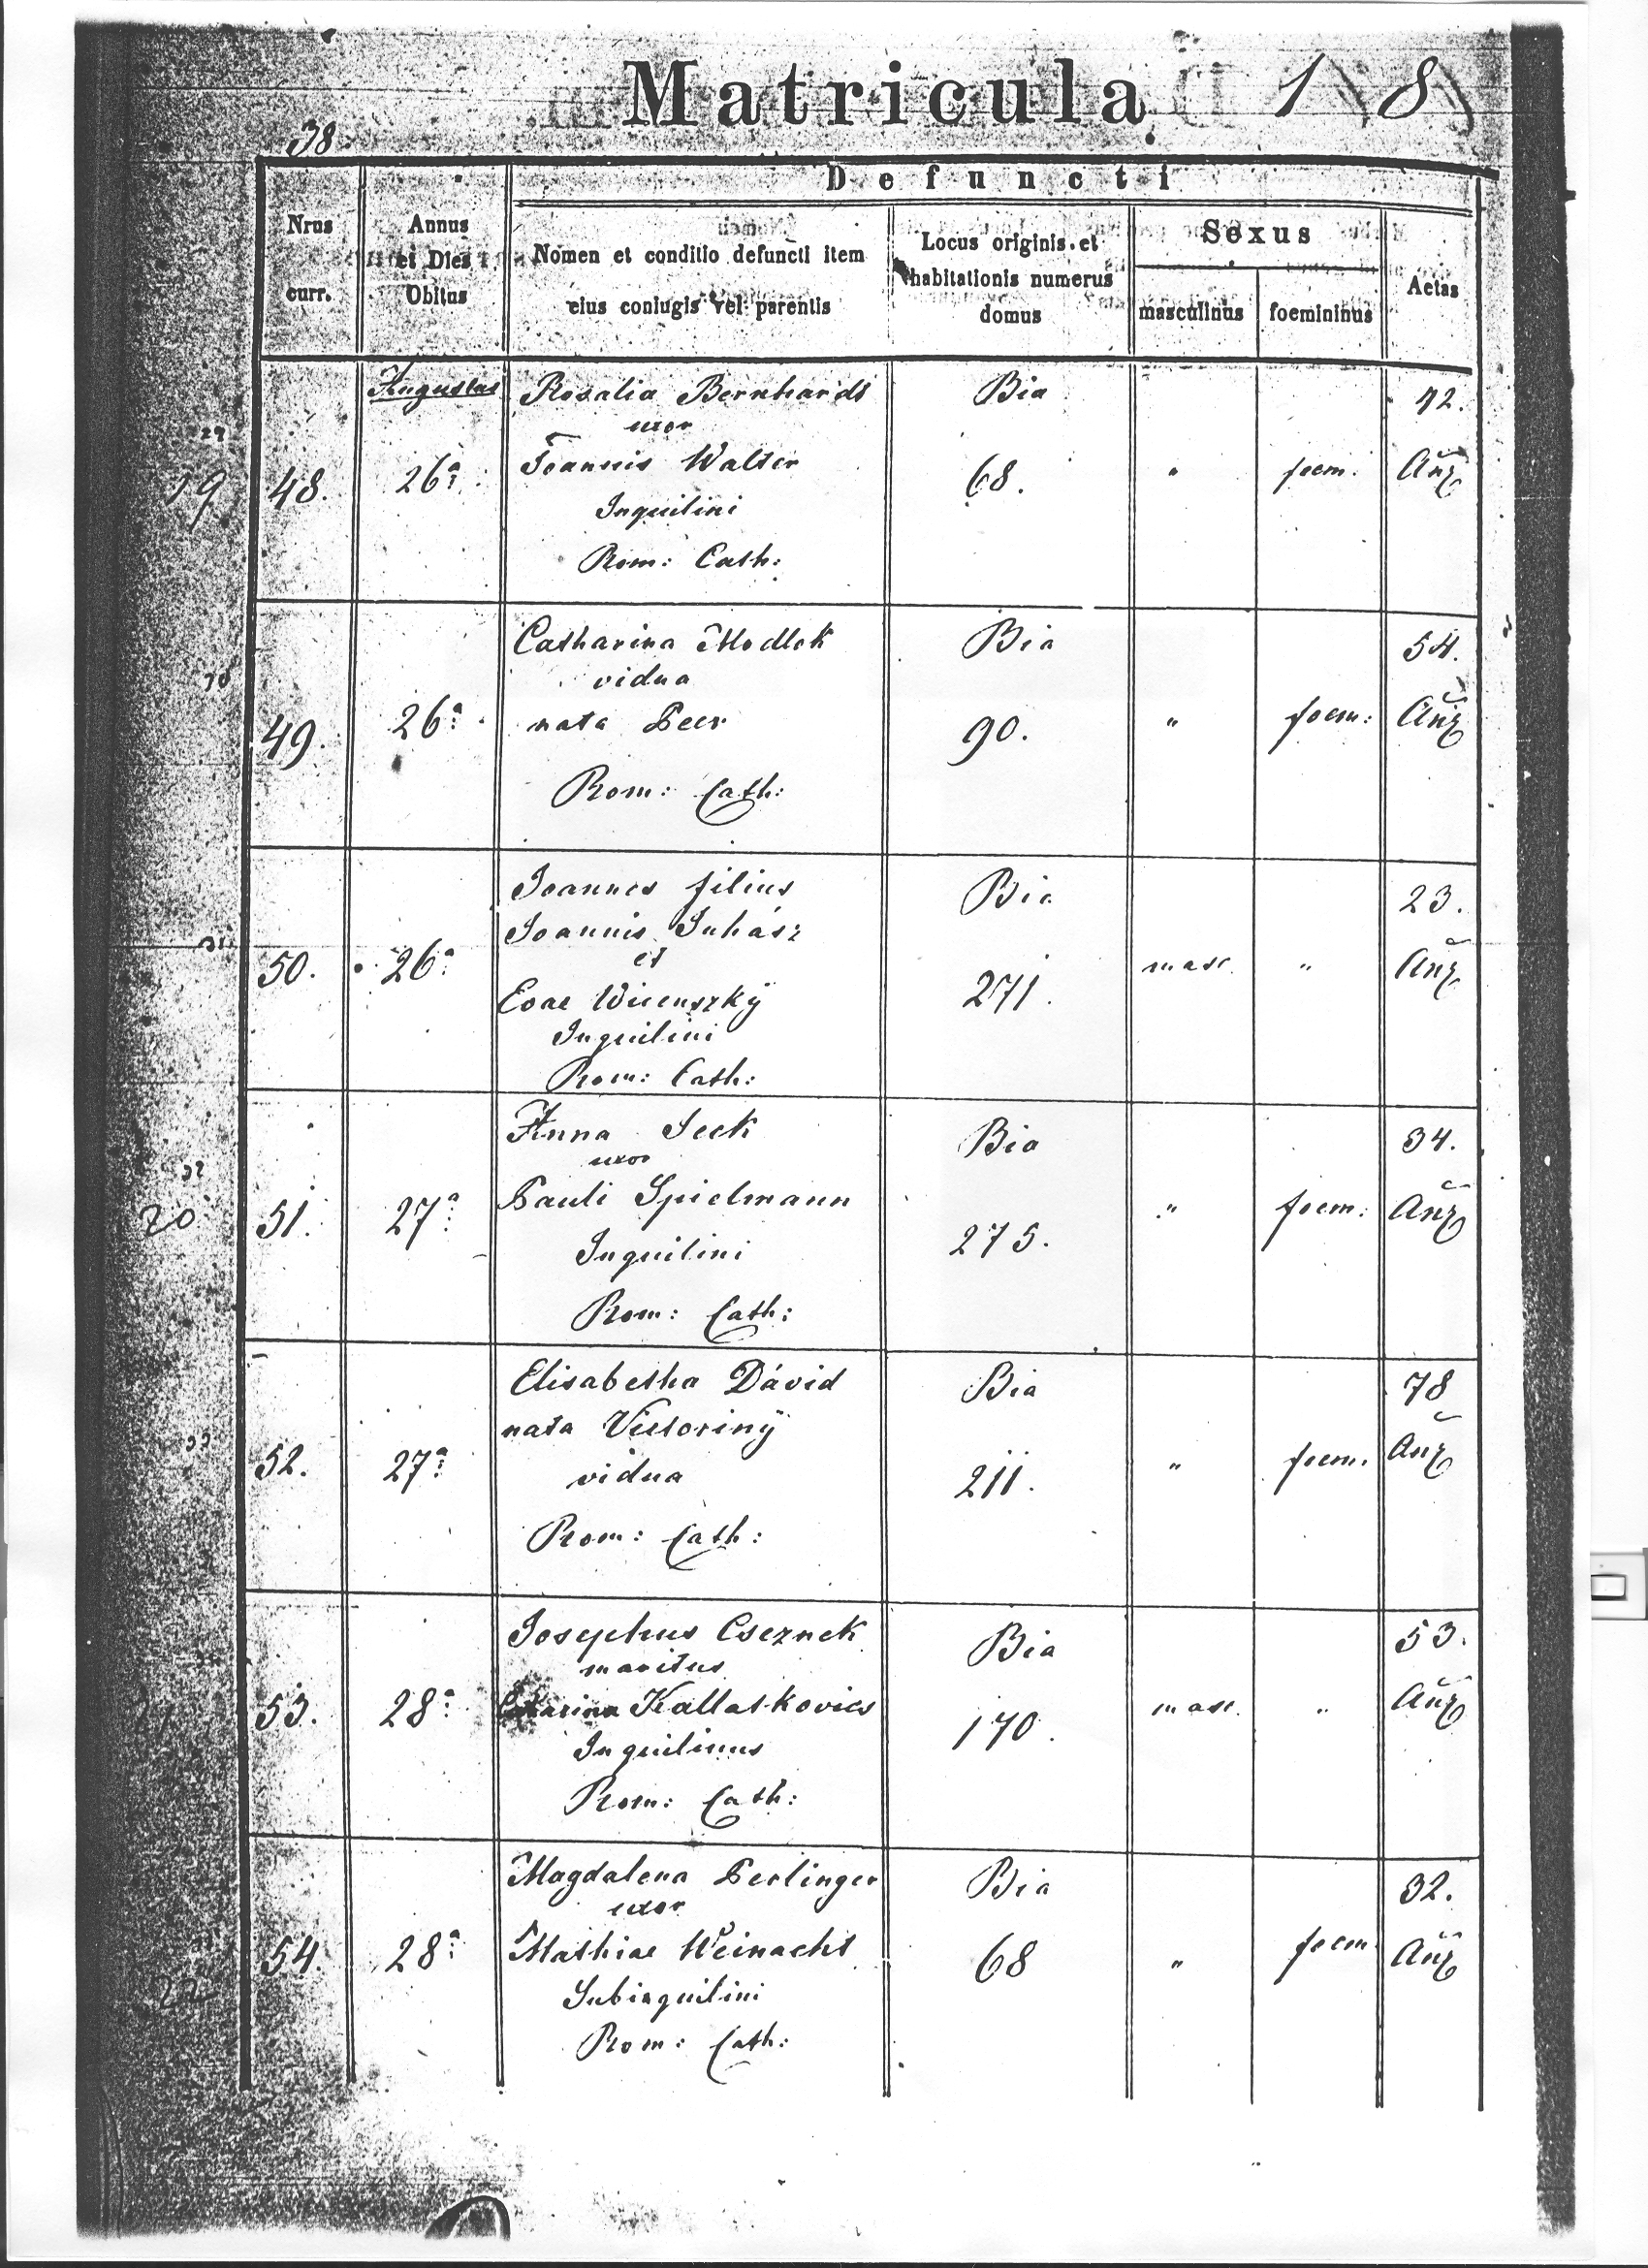 Matricula 1 8
38.
Defuncti
Nrus
curr.
Annus
et Dies
Obitus
Nomen et conditio defuncti item
eius coniugis vel parentis
Locus originis et
habitationis numerus
domus
Sexus
masculinus
foemininus
Aetas
Augustus
29
19
48.
26ª
Rosalia Bernhardt
uxor
Joannis Walter
Inquilini
Rom: Cath:
Bia
68.
"
foem:
42.
Añz
30
49.
26ª
Catharina Modlok
vidua
nata Peer
Rom: Cath:
Bia
90.
"
foem:
54.
Añz
31
50.
26ª
Joannes filius
Joannis Juhász
et
Evae
Inquilini
Rom: Cath:
Bia
271.
masc.
"
23.
Añz
32
20
51.
27ª
Anna Seck
uxor
Pauli Spielmann
Inquilini
Rom: Cath:
Bia
275.
"
foem:
34.
Añz
33
52.
27ª
Elisabetha Dávid
nata Victoriny
vidua
Rom: Cath:
Bia
211.
"
foem.
78
Añz
21
53.
28ª
Josephus Cseznek
maritus
Catharina Kallatkovics
Inquilinus
Rom: Cath:
Bia
170.
masc.
"
53.
Añz
22
54.
28ª
Magdalena Perlinger
uxor
Mathiae Weinacht
Subinquilini
Rom: Cath:
Bia
68
"
foem
32.
Añz